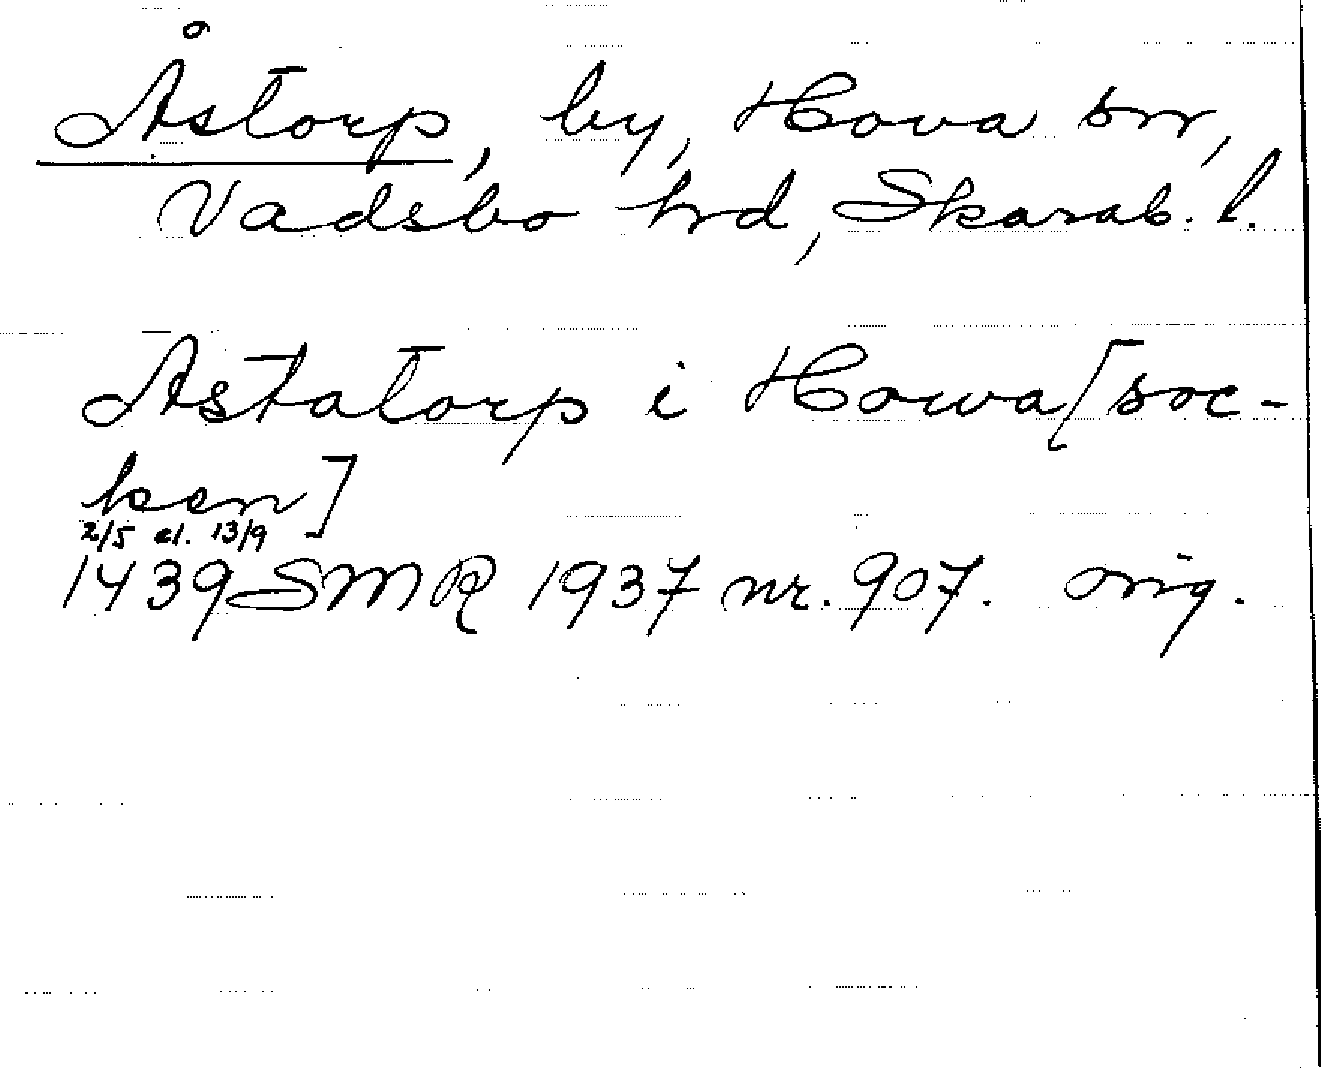 Åstorp, by, Hova sn,
Vadsbo hrd, Skarab. l.
Astatorp i Howa [soc-
ken]
2/5 el. 13/9
1439 SMR 1937 nr. 907. orig.